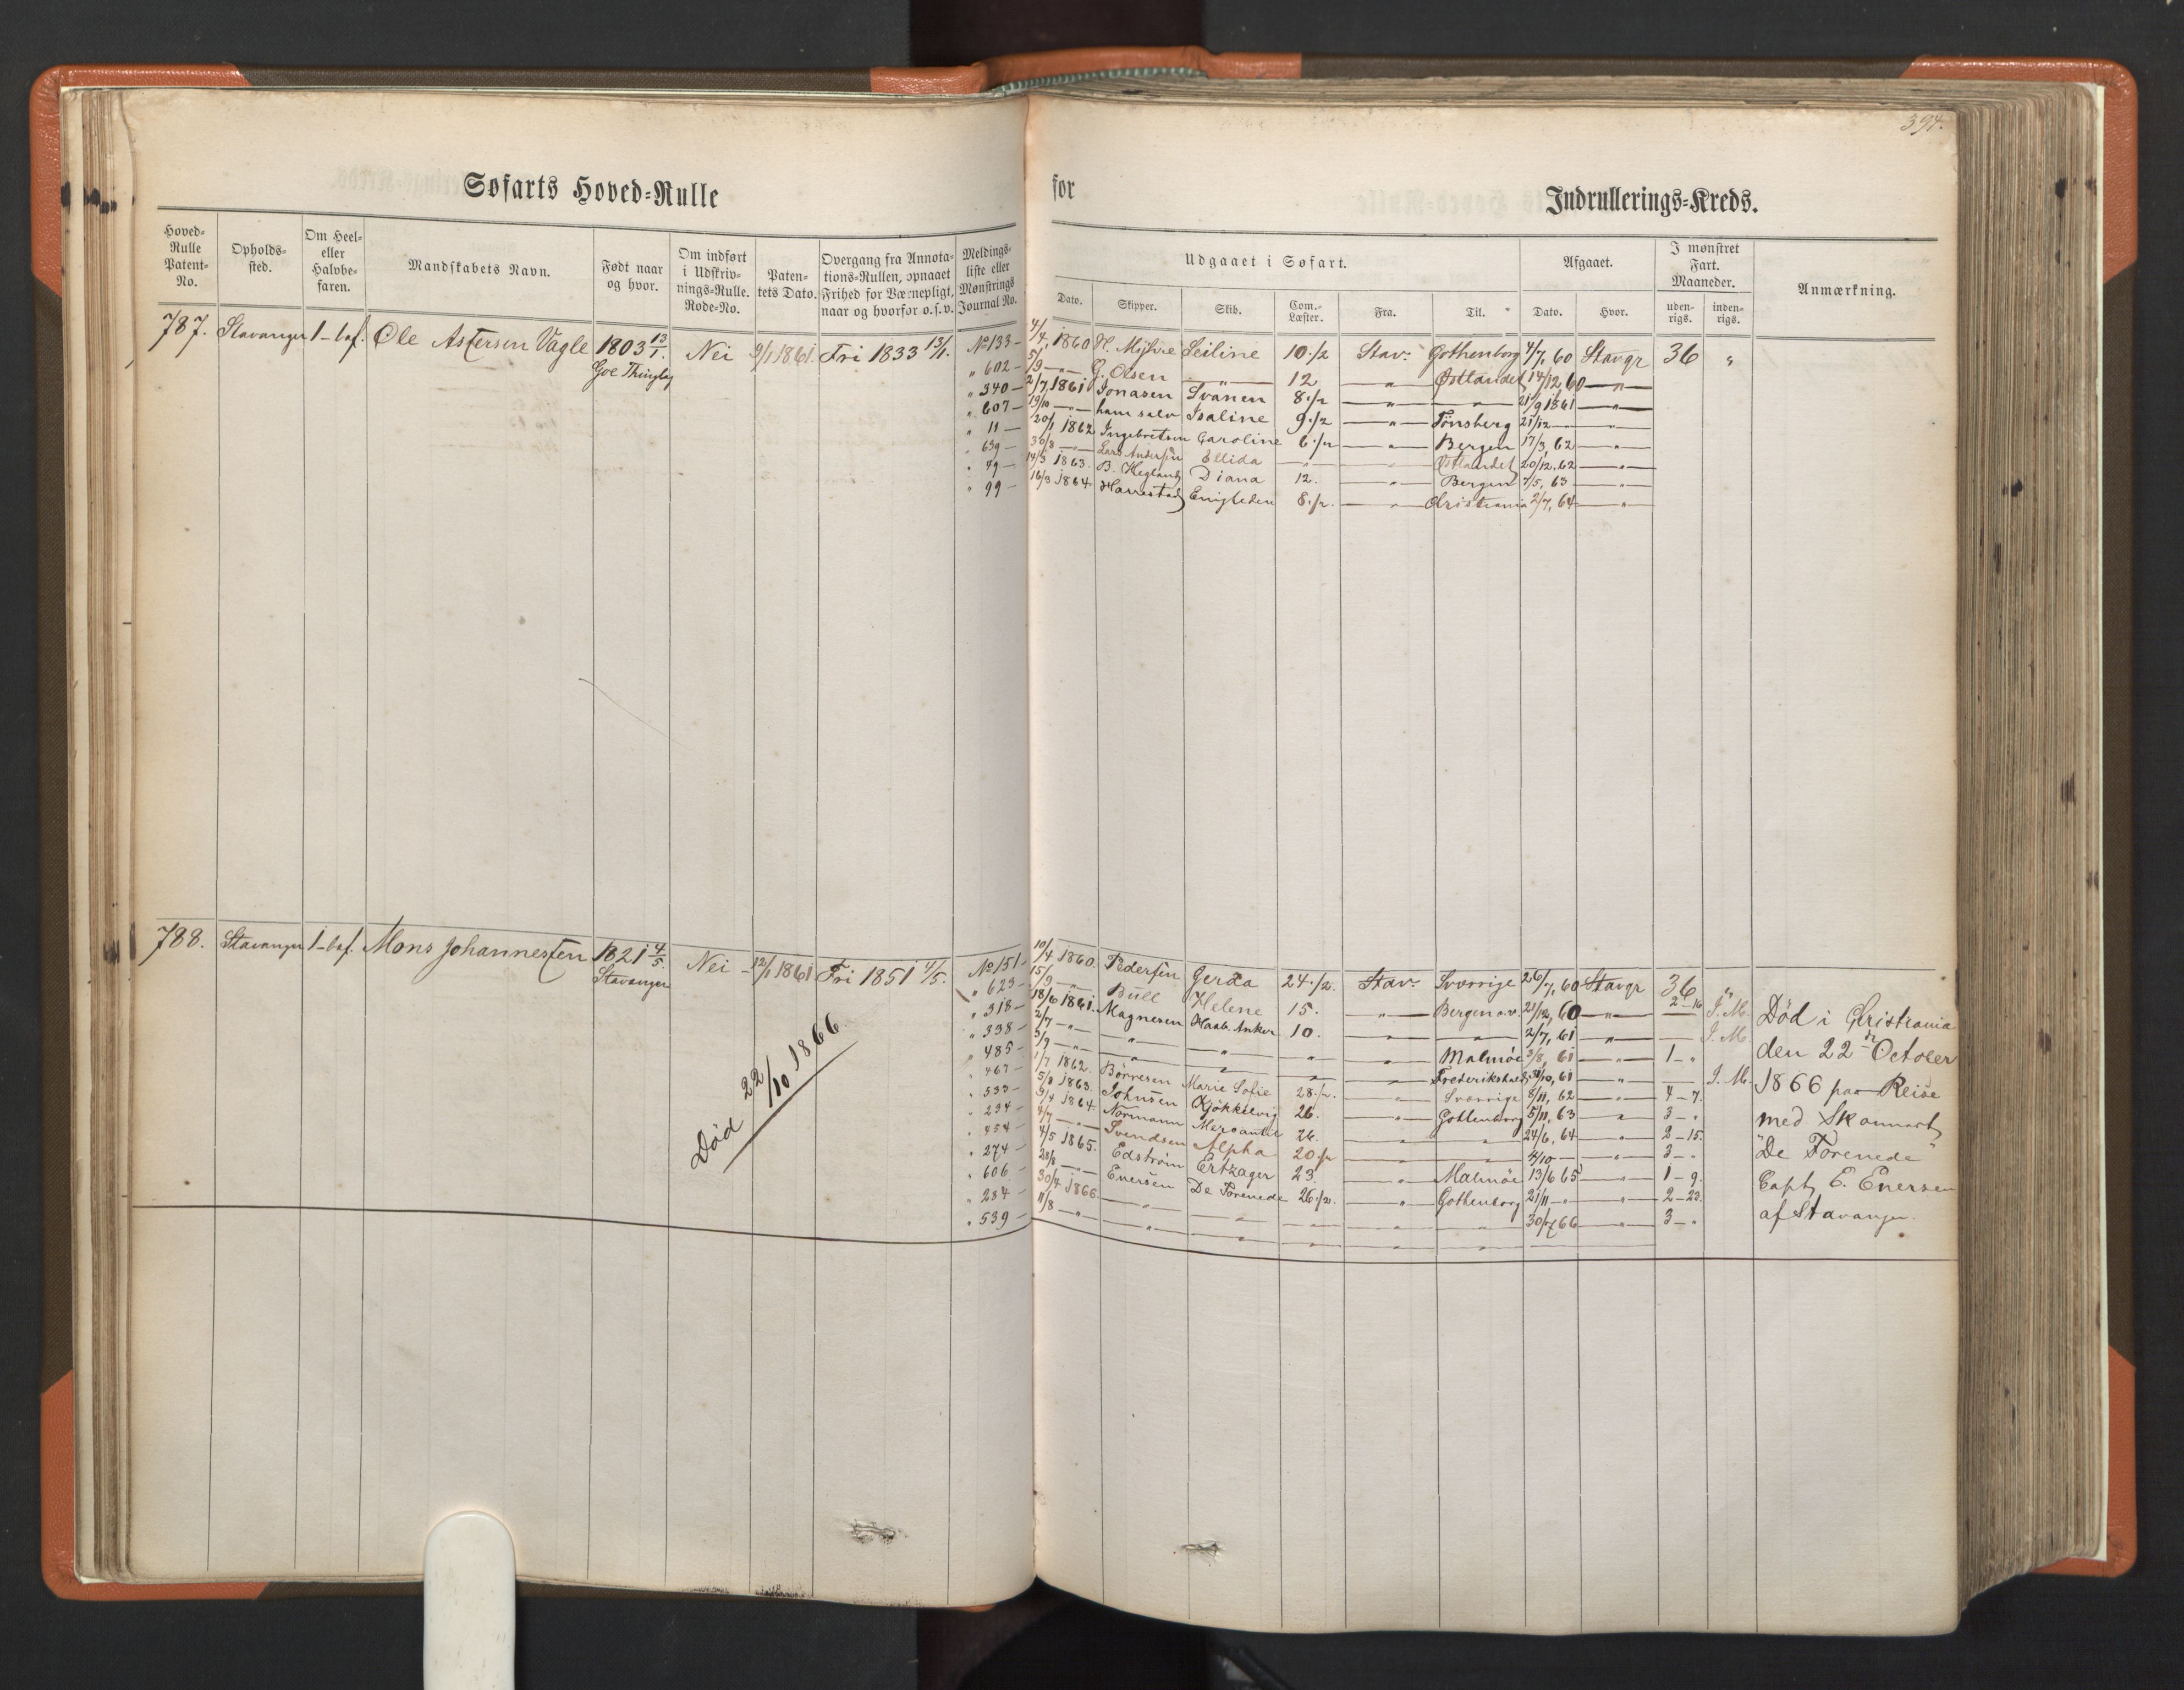 394.
Søfarts Hoved-Rulle for Indrullerings-Kreds.
Hoved-Rulle Patent-No. Opholds-sted. Om Heel- eller Halvbe-faren. Mandskabets Navn. Født naar og hvor. Om indført i Udskriv-nings-Rulle. Rode-No. Paten-tets Dato. Overgang fra Annota-tions-Rullen, opnaaet Frihed for Værnepligt, naar og hvorfor o.s.v. Meldings-liste eller Mønstrings Journal No.
Udgaaet i Søfart. Afgaaet. I mønstret Fart. Maaneder. Anmærkning.
Dato. Skipper. Skib. Com.-Læster. Fra. Til. Dato. Hvor. uden-rigs. inden-rigs.
787. Stavanger 1-baf. Ole Astersen Vagle 1803 13/1. Nei 9/1 1861. Fri 1833 13/1. No 133 - 4/4, 1860 H. Seiline 10.½ Stav. Gothenborg 4/7, 60 Stavgr 36 "
Goe Thinglag " 602 - 5/9 — " — G. Olsen — " — 12 — " — Østlandet 14/12, 60 — " —
" 340 - 2/7 1861 Jonasen Svanen 8.½ — " — — " — 21/9 1861 — " —
" 607 - 19/10 — " — ham selv Isaline 9.½ — " — Tønsberg 21/12 — — " —
" 11 — 20/1 1862 Ingebretsen Caroline 6.½ — " — Bergen 17/3, 62 — " —
" 639 — 30/8 — " — Lars Andersen Ellida — " — — " — Østlandet 20/12, 62 — " —
" 49 — 14/3 1863. B. Hegland Diana 12. — " — Bergen 7/5, 63 — " —
" 99 — 16/3 1864 Harrestad Enigheden 8.½. — " — Christiania 2/7, 64 — " —
788. Stavanger 1-baf. Mons Johannessen 1821 4/5. Nei - 12/1 1861 Fri 1851 4/5. No 151 - 10/4 1860. Pedersen Gerda 24.½. Stav. Sverrige 26/7, 60 Stavgr 36 "
Stavanger " 623 - 15/9 — " — Bull Helene 15. — " — Bergen o.v. 21/12, 60 — " — 2-16 J. M.
" 318 - 18/6 1861. Magnesen Haab. Anker 10. — " — — " — 2/7, 61 — " — — J. M.
" 338 - 2/7 — " — — " — — " — — " — — " — Malmöe 3/8, 61 — " — 1 - "
" 485 - 3/9 — " — — " — — " — — " — — " — Frederikshald 31/10, 61 — " — — J. M.
" 467 - 1/7 1862. Børresen Marie Sofie 28.½. — " — Sverrige 8/11, 62 — " — 4 - 7.
" 533 - 5/8 1863. Johnsen Kjøkkelvig 26. — " — Gothenborg 5/11, 63 — " — 3 - "
" 234 - 9/4 1864. Normann Mercantil 26. — " — — " — 24/6, 64 — " — 2 - 15.
" 454 - 4/7 — " — Svendsen Alpha 20.½ — " — — " — 4/10 — — " — 3 - "
" 274 - 4/5 1865. Edstrøm Ertzager 23. — " — Malmöe 13/6 65 — " — 1 - 9.
" 606 - 28/8 — " — Enersen De Forenede 26.½. — " — Gothenborg 21/11 - " — " — 2 - 23.
" 284 - 30/4 1866. — " — — " — — " — — " — — " — 30/7 66 — " — 3 - "
" 539 - 11/8 — " — — " — — " — — " — — " — — " —
Død 22/10 1866.
Død i Christiania
den 22de October
1866 paa Reise
med Skonnert
"De Forenede"
Capt. E. Enersen
af Stavanger.